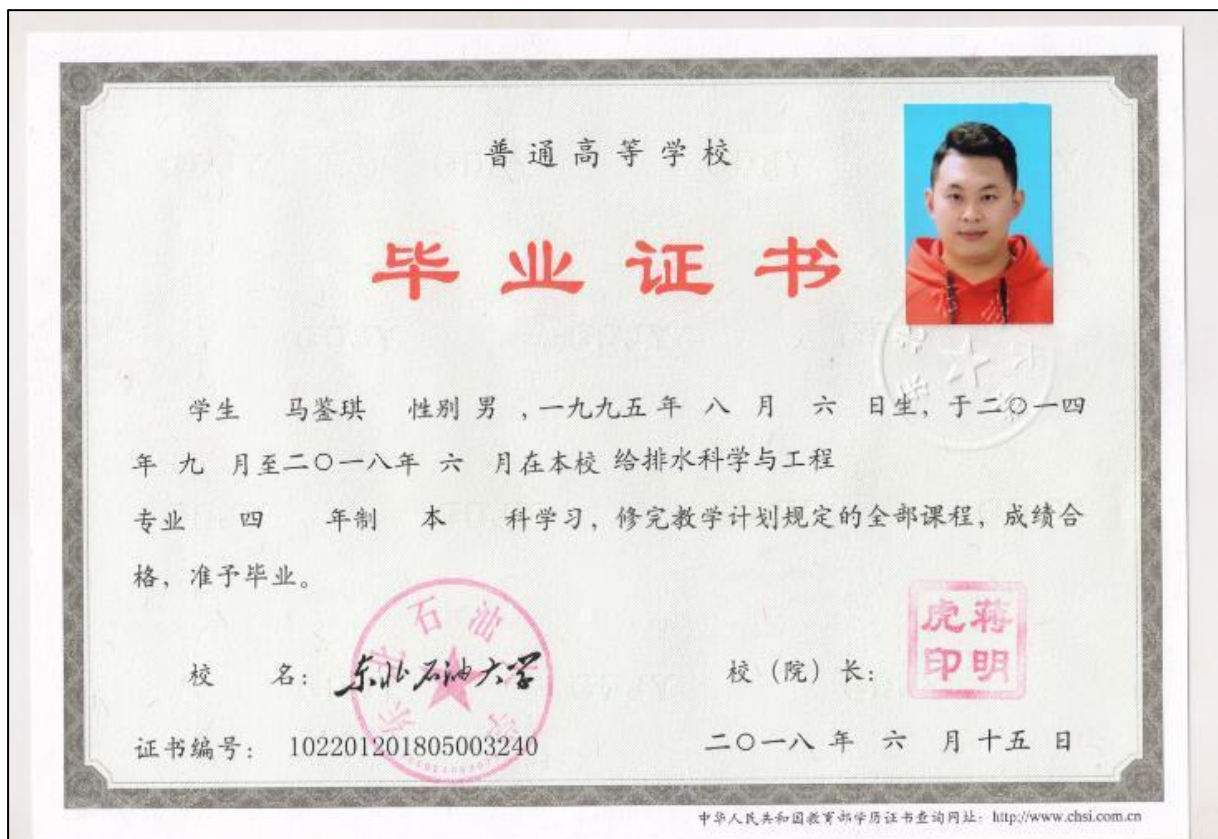 普通高等学校
毕业证书
学生 马鉴琪 性别 男 ,一九九五 年 八 月 六 日生, 于二〇一四
年 九 月至二〇一八年 六 月在本校 给排水科学与工程
专业 四 年制 本 科学习, 修完教学计划规定的全部课程, 成绩合
格, 准予毕业。
校 名: 东北石油大学
校 (院) 长:
蒋明
虎印
证书编号: 102201201805003240
二〇一八 年 六 月 十五 日
中华人民共和国教育部学历证书查询网址: http://www.chsi.com.cn